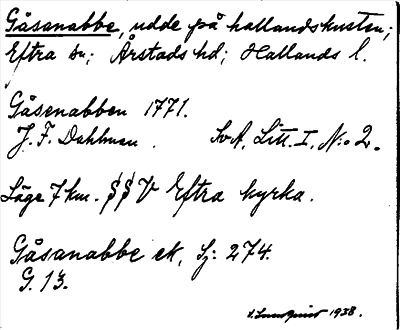 Gåsanabbe, udde på hallandskusten;
Eftra sn; Årstads hd; Hallands l.
Gåsenabben 1771.
J. F. Dahlman. SvA, Litt. I, N:o 2.
Läge 7 km. SSV Eftra kyrka.
Gåsanabbe ek, Sj: 274.
G. 13.
1938.